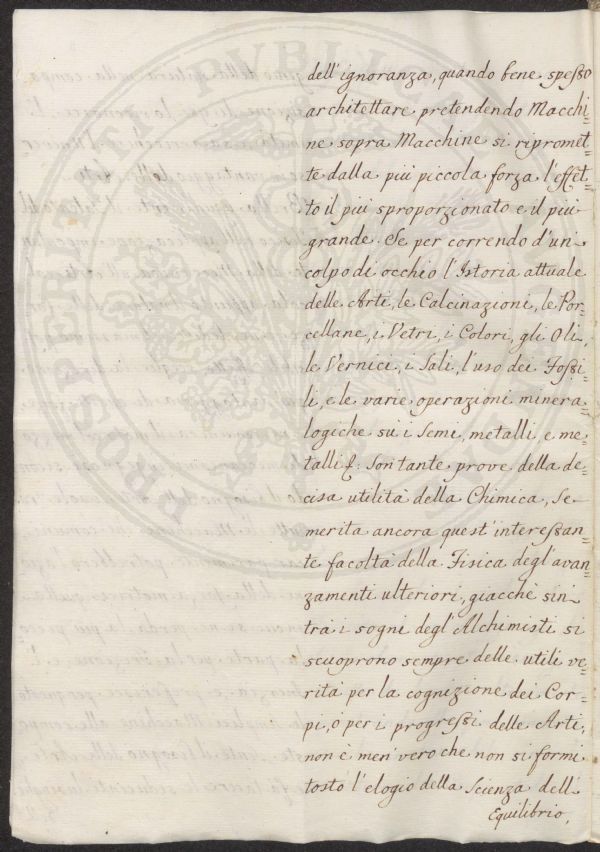 dell'ignoranza, quando bene spesso
architettare pretendendo Macchi=
ne sopra Macchine si ripromet=
te dalla più piccola forza l'effet=
to il più sproporzionato e il più
grande. Se per correndo d'un
colpo di occhio l'Istoria attuale
delle Arti, le Calcinazioni, le Por=
cellane, i Vetri, i Colori, gli Oli,
le Vernici, i Sali, l'uso dei Fossi=
li, e le varie operazioni minera=
logiche sù i Semi, metalli, e me=
talli &: Son tante prove della de=
cisa utilità della Chimica, Se
merita ancora quest'interessan=
te facoltà della Fisica degl'avan=
zamenti ulteriori, giacchè sin
trà i sogni degl'Alchimisti si
scuoprono sempre delle utili ve=
rità per la cognizione dei Cor=
pi, o per i progressi delle Arti,
non è men' vero che non si formi
tosto l'elogio della Scienza dell'
Equilibrio,
PROSPERITATI PVBLICAE